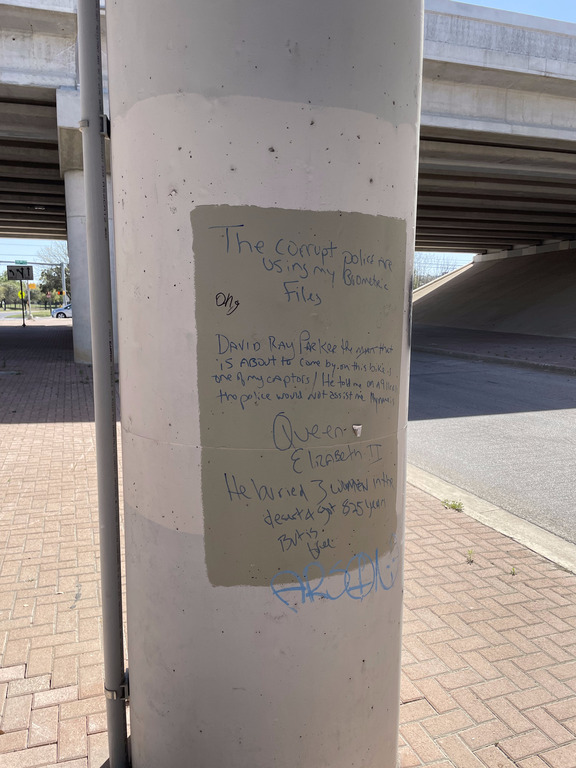 The corrupt police are
using my Biometric
Files
Ohg
DAVID RAY PARKER the man that
is ABout to come by on this bike is
one of my captors! He told me on a 911
the police would not assist me. My name is
Queen
ElizABeth II
He buried 3 women in the
desert & got 825 years
But is
free